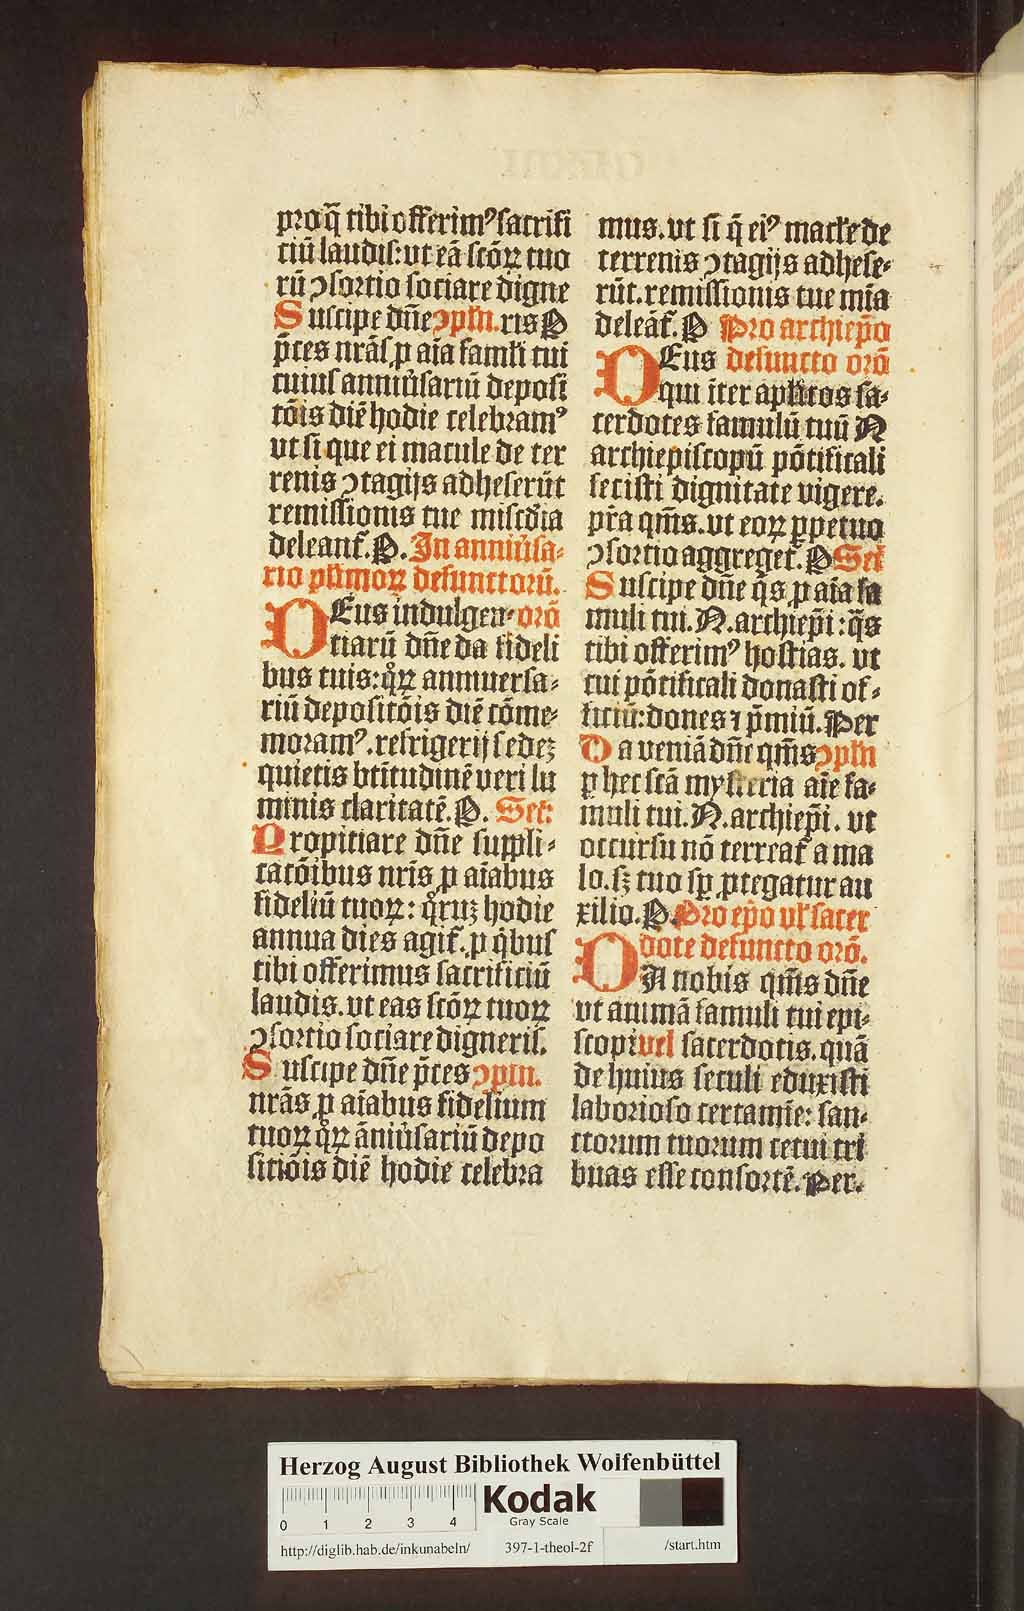 pro q̄ tibi offerimꝰ sacrifi
ciū laudis: ut eā scōꝝ tuo
rū ↄsortio sociare digne
Suscipe dn̄e ↄpl̄n. ris P
p̄ces nr̄as ꝓ aīa famlī tui
cuius anniūsariū deposi
tōis diē hodie celebramꝰ
ut si que ei macule de ter
renis ↄtagijs adheserūt
remissionis tue misc̄dia
deleant᷑. P. In anniūsa⸗
rio pl̄imoꝝ defunctorū.
DEus indulgen⸗ orō
tiarū dn̄e da fideli
bus tuis: qͦꝝ anniuersa⸗
riū depositōis diē cōme⸗
moramꝰ. refrigerij sedeꝫ
quietis btītudinē veri lu
minis claritatē. P. Sec̄:
Propitiare dn̄e suppli⸗
catōibus nr̄is ꝓ aīabus
fideliū tuoꝝ: qͦruꝫ hodie
annua dies agit᷑. ꝓ qͥbus
tibi offerimus sacrificiū
laudis. ut eas scōꝝ tuoꝝ
ↄsortio sociare digneris.
Suscipe dn̄e p̄ces ↄpln̄.
nr̄as ꝓ aīabus fidelium
tuoꝝ qͦꝝ āniūsariū depo
sitiōis diē hodie celebra
mus. ut si q̄ eiꝰ macl̄e de
terrenis ↄtagijs adhese⸗
rūt. remissionis tue mīa
deleāt᷑. P Pro archiep̄o
DEus defuncto orō
qui īter apl̄icos sa⸗
cerdotes famulū tuū N
archiepiscopū pōtificali
fecisti dignitate vigere.
pr̄a qm̄s. ut eoꝝ ꝑpetuo
ↄsortio aggreget᷑. P Sec̄
Suscipe dn̄e q̄s ꝓ aīa fa
muli tui. N. archiep̄i: q̄s
tibi offerimꝰ hostias. ut
cui pōtificali donasti of⸗
ficiū: dones ⁊ p̄miū. Per
Da veniā dn̄e qm̄s ↄpl̄n
ꝑ hec scā mysteria aīe fa⸗
muli tui. N. archiep̄i. ut
occursu nō terreat᷑ a ma
lo. sꝫ tuo sꝑ ꝓtegatur au
xilio. P. Pro ep̄o ul̄ sacer
dote defuncto orō.
DA nobis qm̄s dn̄e
ut animā famuli tui epi⸗
scopi vel sacerdotis. quā
de huius seculi eduxisti
laborioso certamīe: san⸗
ctorum tuorum cetui tri
buas esse consortē. Per.
Herzog August Bibliothek Wolfenbüttel
0 1 2 3 4
Kodak
Gray Scale
http://diglib.hab.de/inkunabeln/ 397-1-theol-2f /start.htm